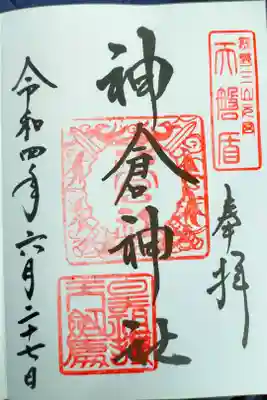 熊野三山元宮
天磐盾
奉拝
神倉神社
令和四年六月二十七日